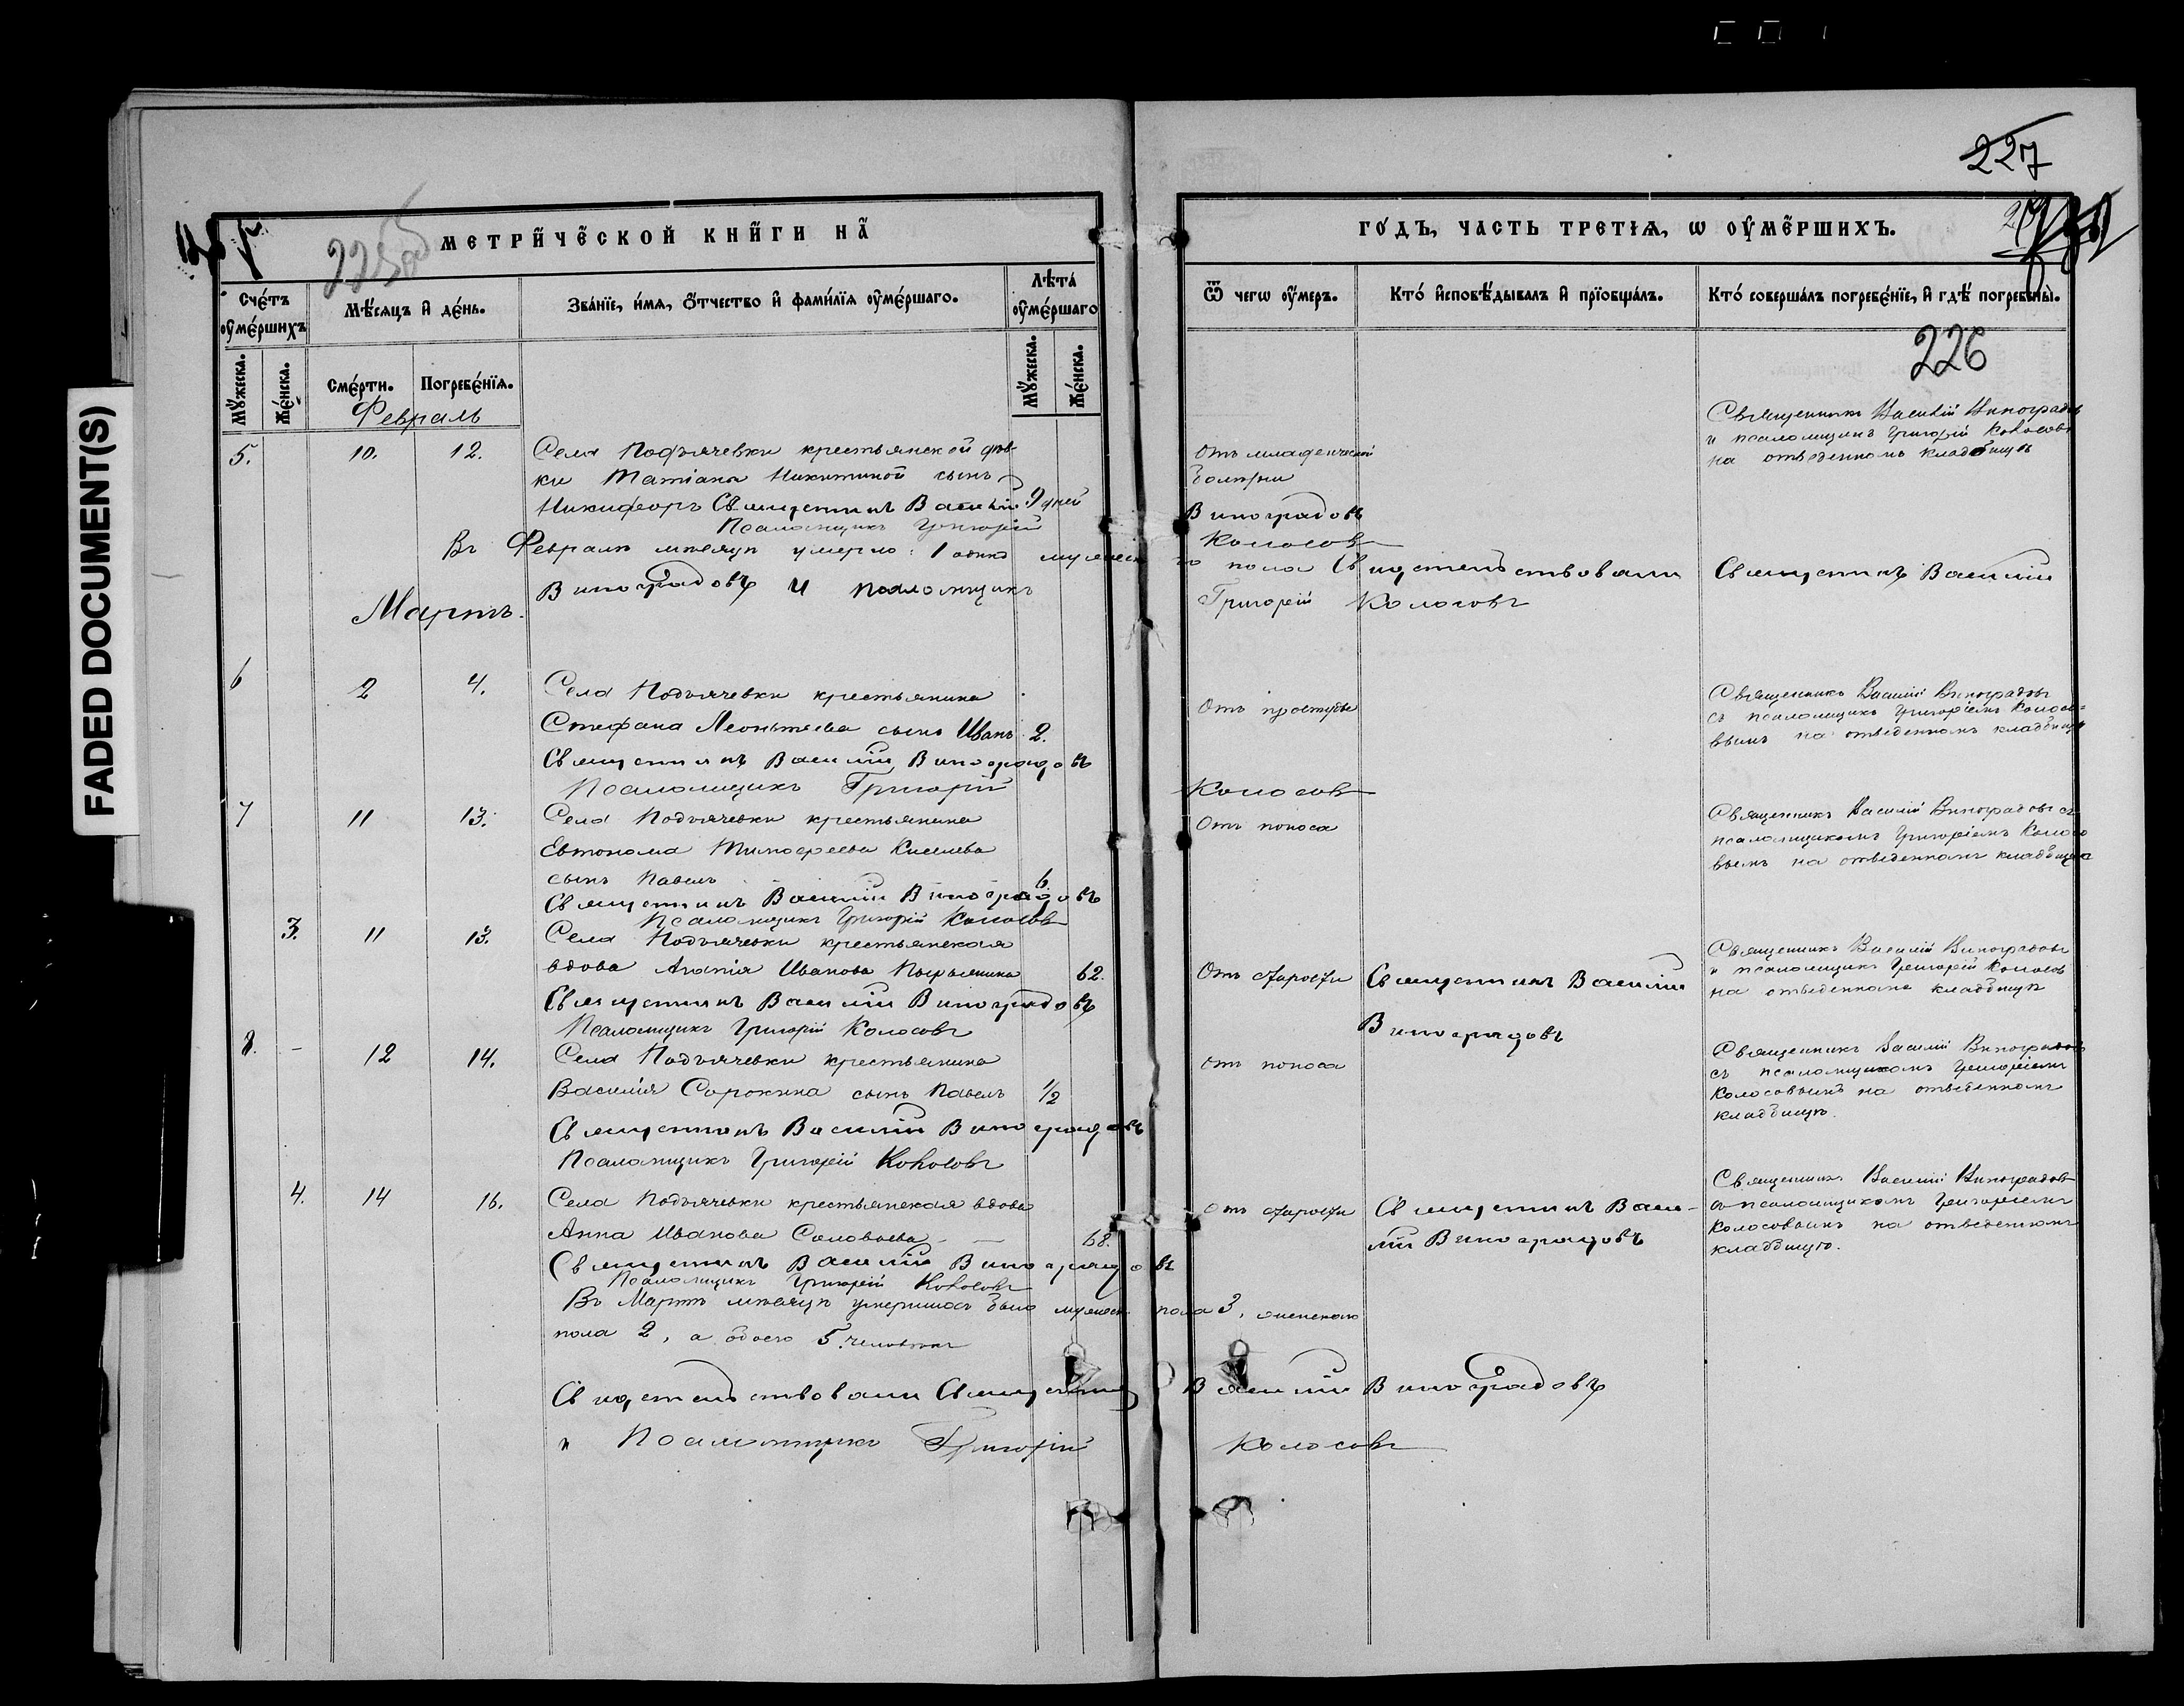 FADED DOCUMENT(S)
227
225об
226
МЕТРИ́ЧЕСКОЙ КНИ́ГИ НА̀
ГО́ДЪ, ЧАСТЬ ТРЕТІѦ, Ѡ ОУМЕ́РШИХЪ.
Сче́тъ оуме́ршихъ
Мѣ́сяцъ и҆ де́нь.
Зва́нїе, и҆́мѧ, ѻ҆́тчество и҆ фами́лїѧ оуме́ршаго.
Лѣта̀ оуме́ршаго
Ѿ чегѡ оу҆́меръ.
Кто́ и҆сповѣ́дывалъ и҆ прїобща́лъ.
Кто́ соверша́лъ погребе́нїе, и҆ гдѣ̀ погребены̀.
Мꙋ́жеска.
Же́нска.
Сме́рти.
Погребе́нїѧ.
Мꙋ́жеска.
Же́нска.
Февраль
5.
10.
12.
Села Подъячевки крестьянской дѣв-
ки Татіана Никитиной сынъ
Никифоръ Священникъ Василій 9 дней
Псаломщикъ Григорій
отъ младенческой
болѣзни
Виноградовъ
Колосовъ
Священникъ Василій Виноградовъ
и псаломщикъ Григорій Колосовъ
на отведенномъ кладбищѣ
Въ Февралѣ мѣсяцѣ умерло: 1 одинъ мужеска
го пола Свидѣтельствовали Священникъ Василій
Виноградовъ и псаломщикъ
Григорій Колосовъ
Мартъ.
6
2
4.
Села Подъячевки крестьянина
Стефана Леонтьева сынъ Иванъ 2.
Священникъ Василій Виноградовъ
Псаломщикъ Григорій Колосовъ
Отъ простуды
Священникъ Василій Виноградовъ
съ псаломщикъ Григоріемъ Колосо-
вымъ на отведенномъ кладбищѣ
7
11
13.
Села Подъячевки крестьянина
Евтонома Тимофеева Киселева
сынъ Павелъ 6.
Священникъ Василій Виноградовъ
Псаломщикъ Григорій Колосовъ
Отъ поноса
Священникъ Василій Виноградовъ съ
псаломщикомъ Григоріемъ Колосо
вымъ на отведенномъ кладбище
3.
11
13.
Села Подъячевки крестьянская
вдова Агапія Иванова 62.
Священникъ Василій Виноградовъ
Псаломщикъ Григорій Колосовъ
Отъ старости
Священникъ Василій
Виноградовъ
Священникъ Василій Виноградовъ
и псаломщикъ Григорій Колосовъ
на отведенномъ кладбищѣ
8.
-
12
14.
Села Подъячевки крестьянина
Василія Сорокина сынъ Павелъ 1/2
Священникъ Василій Виноградовъ
Псаломщикъ Григорій Колосовъ
отъ поноса
Священникъ Василій Виноградовъ
съ псаломщикомъ Григоріемъ
Колосовымъ на отведенномъ
кладбищѣ.
4.
14
16.
Села Подъячевки крестьянская вдова
Анна Иванова Соловьева - - 68.
Священникъ Василій Виноградовъ
Псаломщикъ Григорій Колосовъ
отъ старости
Священникъ Васи-
лій Виноградовъ
Священникъ Василій Виноградовъ
съ псаломщикомъ Григоріемъ
Колосовымъ на отведенномъ
кладбищѣ.
Въ Мартѣ мѣсяцѣ умершихъ было мужеск. пола 3, женскаго
пола 2, а обоего 5. человѣкъ
Свидѣтельствовали Священникъ Василій Виноградовъ
и Псаломщикъ Григорій Колосовъ